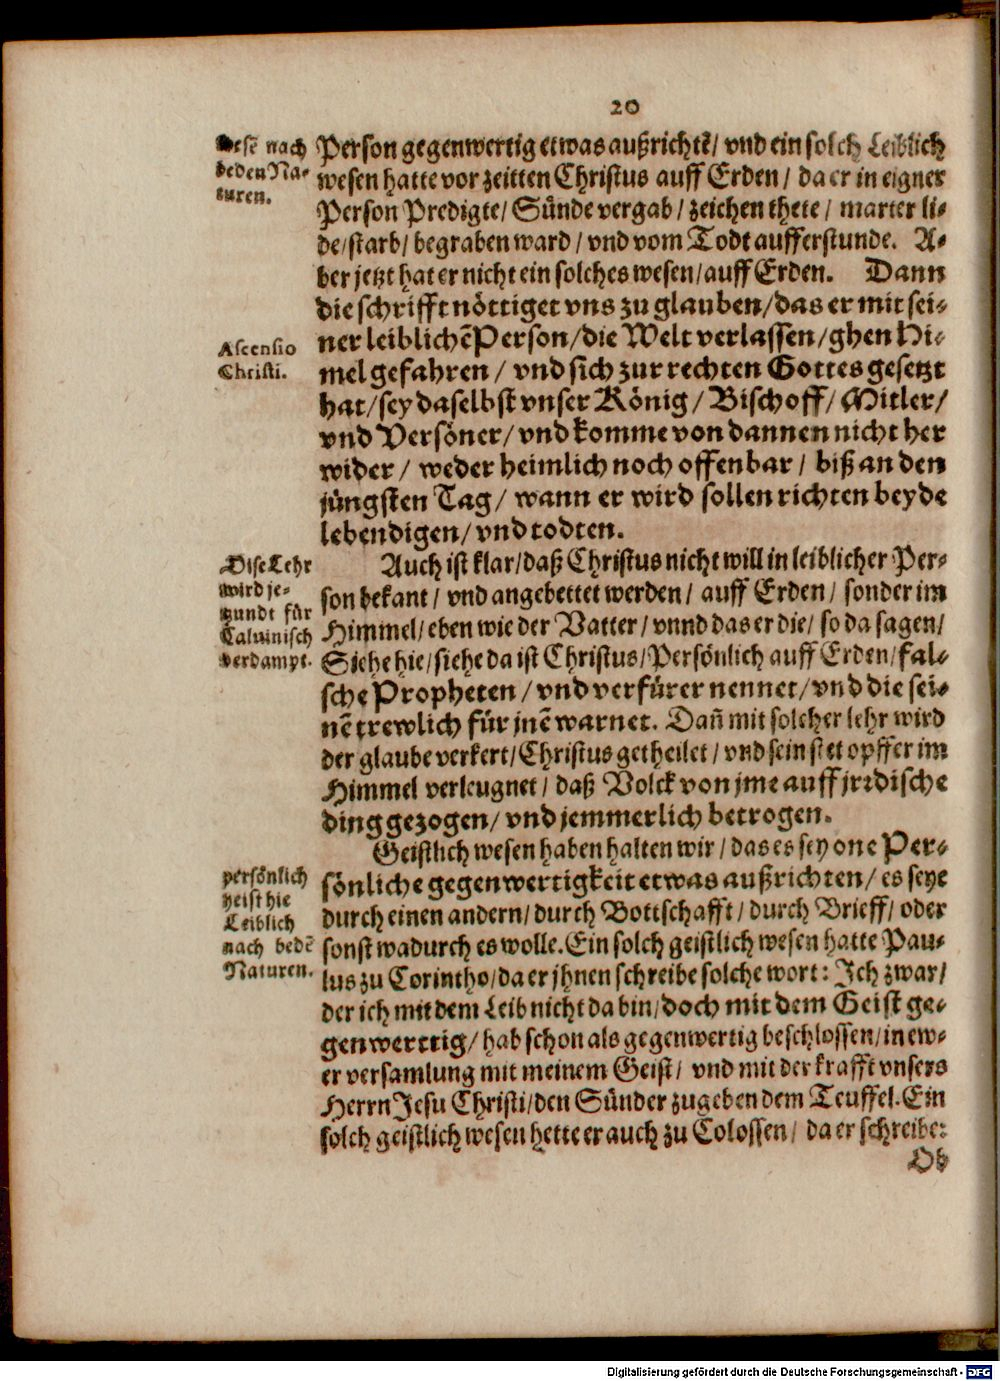 20
wesē nach
beden Na-
turen.
Person gegenwertig etwas außrichtē/ vnd ein solch Leiblich
wesen hatte vor zeitten Christus auff Erden/ da er in eigner
Person Predigte/ Sünde vergab/ zeichen thete/ marter li-
de/ starb/ begraben ward/ vnd vom Todt aufferstunde. A-
ber jetzt hat er nicht ein solches wesen/ auff Erden. Dann
die schrifft nöttiget vns zu glauben/ das er mit sei-
ner leiblichē Person/ die Welt verlassen/ ghen Hi-
mel gefahren/ vnd sich zur rechten Gottes gesetzt
hat/ sey daselbst vnser König/ Bischoff/ Mitler/
vnd Versöner/ vnd komme von dannen nicht her
wider/ weder heimlich noch offenbar/ biß an den
jüngsten Tag/ wann er wird sollen richten beyde
lebendigen/ vnd todten.
Ascensio
Christi.
Auch ist klar/ daß Christus nicht will in leiblicher Per-
son bekant/ vnd angebettet werden/ auff Erden/ sonder im
Himmel/ eben wie der Vatter/ vnnd das er die/ so da sagen/
Siehe hie/ siehe da ist Christus/ Persönlich auff Erden/ fal-
sche Propheten/ vnd verfürer nennet/ vnd die sei-
nē trewlich für jnē warnet. Dañ mit solcher lehr wird
der glaube verkert/ Christus getheilet/ vnd sein stet opffer im
Himmel verleugnet/ daß Volck von jme auff jrrdische
ding gezogen/ vnd jemmerlich betrogen.
Dise Lehr
wird je-
tzundt für
Caluinisch
verdampt.
Geistlich wesen haben halten wir/ das es sey one Per-
sönliche gegenwertigkeit etwas außrichten/ es seye
durch einen andern/ durch Bottschafft/ durch Brieff/ oder
sonst wadurch es wolle. Ein solch geistlich wesen hatte Pau-
lus zu Corintho/ da er jhnen schreibe solche wort: Ich zwar/
der ich mit dem Leib nicht da bin/ doch mit dem Geist ge-
genwerttig/ hab schon als gegenwertig beschlossen/ in ew-
er versamlung mit meinem Geist/ vnd mit der krafft vnsers
Herrn Jesu Christi/ den Sünder zugeben dem Teuffel. Ein
solch geistlich wesen hette er auch zu Colossen/ da er schreibe:
persönlich
heist hie
Leiblich
nach bedē
Naturen.
Ob
Digitalisierung gefördert durch die Deutsche Forschungsgemeinschaft - DFG